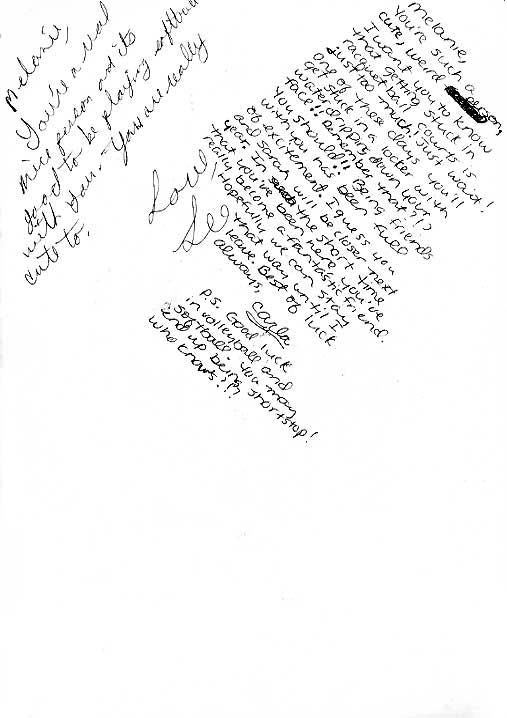 Melanie,
You're a real
nice person and its
good to be playing softball
with you. You are really
cute to.
Love,
Melanie,
You're such a
cute, weird person,
I want you to know
that getting stuck in
racquetball courts is
just too much! Just wait!
one of these days you'll
get stuck in a locker with
water dripping down your
face!! Remember that?!?
You should!! Being friends
with you has been full
of excitement. I guess you
and Sarah will be closer next
year. In the short time
that you've been here you've
really become a frantastic friend.
Hopefully we can stay
that way until I
leave. Best of luck
always,
Carla
P.S. Good luck
in volleyball and
softball. You may
end up being shortstop!
who knows?!?